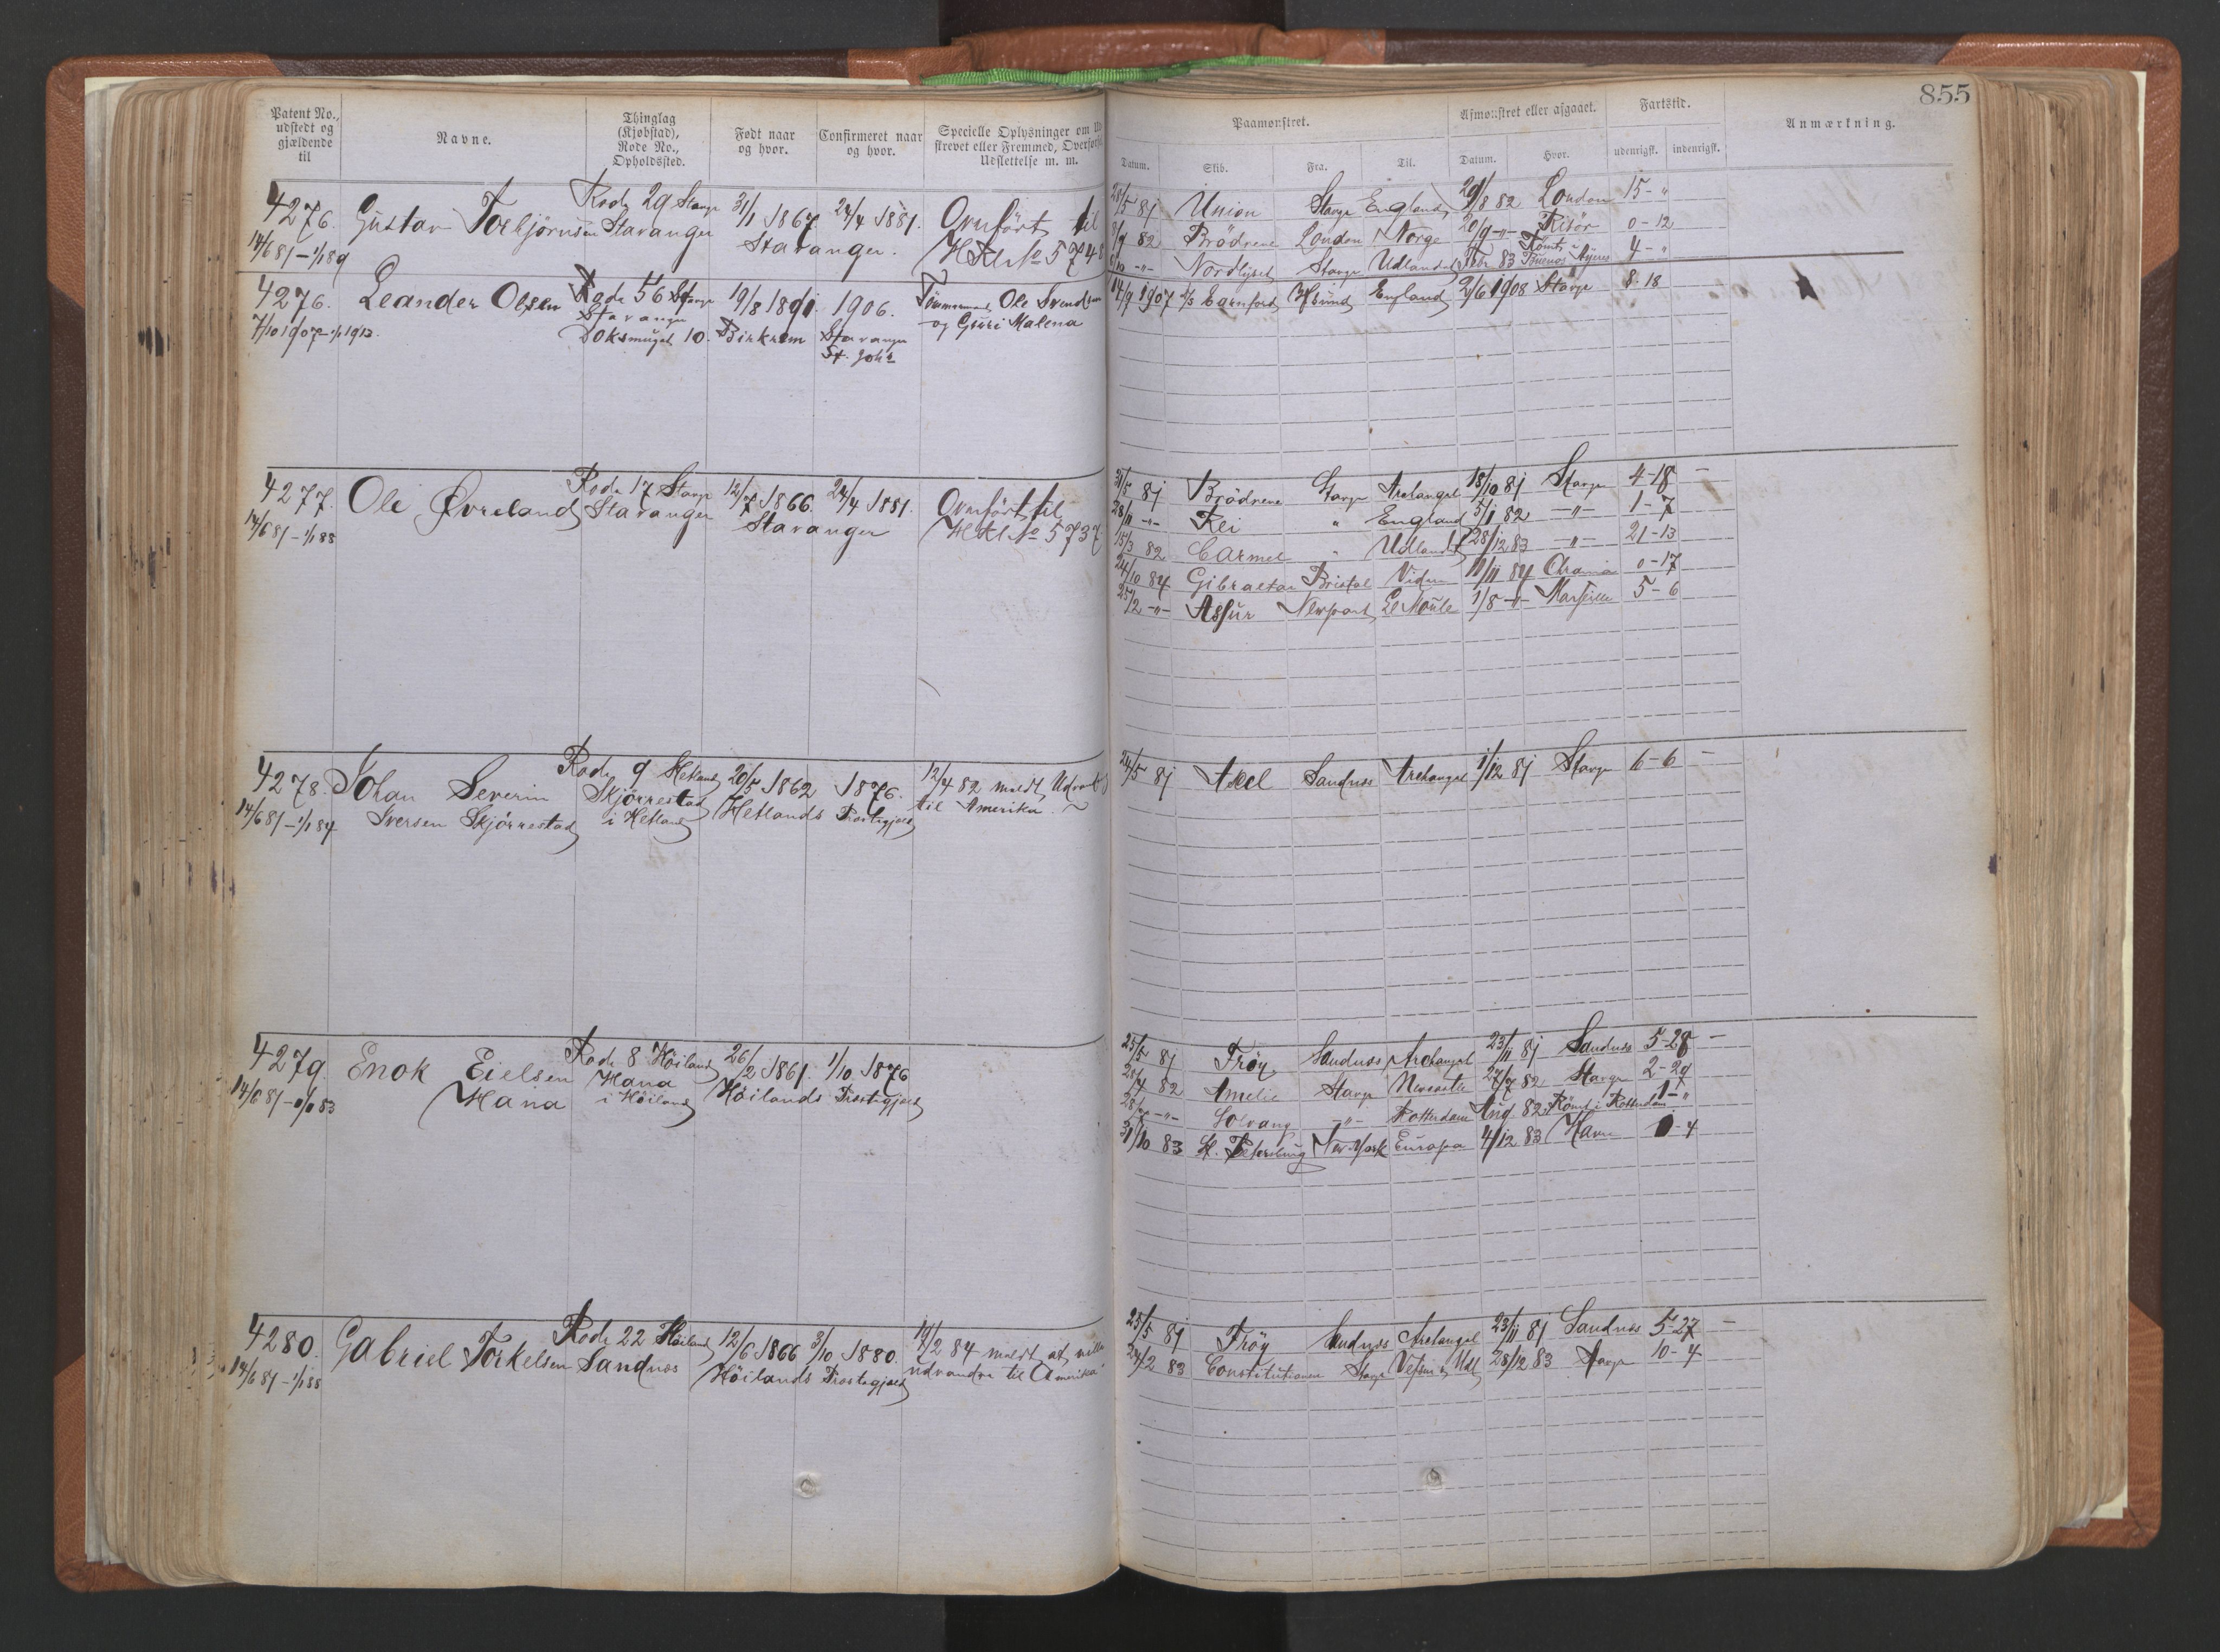 855
Patent No., udstedt og gjældende til
Navne.
Thinglag (Kjøbstad), Rode No., Opholdssted.
Født naar og hvor.
Confirmeret naar og hvor.
Specielle Oplysninger om
strevet eller Fremmed,
Udslettelse m. m.
Paamønstret.
Afmønstret eller afgaaet.
Fartstid.
Anmærkning.
Datum. Skib. Fra. Til. Datum. Hvor. udenrigsk. indenrigsk.
4276. Gustav Torbjörnsen Rode 29 Stavgr 31/1 1867. 24/4 1881. Overfört til
14/6 81 - 1/1 89 Stavanger Stavanger. HKl No 5748
28/5 81 Union Stavgr England 29/8 82 London 15 - "
8/9 82 Brödrene London Norge 20/9 -"- Risör 0 - 12
-"- Nordlyset Stavgr Udlandet Febr 83 Römt i Buenos Ayres 4 - "
4276. Leander Olsen Rode 56 Stavgr 19/8 1891. 1906. Ole Svendsen
7/10 1907 - 1/1 1913. Stavanger og Guri Malena
10. Birkrem Stavanger
St. Joh
14/9 1907 England 2/6 1908 Stavgr 8 - 18
4277. Ole Øvreland Rode 17 Stavgr 12/7 1866. 24/4 1881. Overfört til
14/6 81 - 1/1 88 Stavanger Stavanger HKl No 5737
31/5 81 Brödrene Stavgr Archangel 18/10 81 Stavgr 4 - 18 -
28/11 -"- Rei " England 5/1 82 -"- 1 - 7
15/3 82 Carmel " Udlandet 28/12 83 -"- 21 - 13
24/10 84 Gibraltar Bristol Viden 11/11 84 Chrania 0 - 17
25/2 -"- Assur Newport Le Moule 1/8 -"- Marseille 5 - 6
4278. Johan Severin Rode 9 Hetland 20/5 1862 1876. 12/4 82 meldt Udvandret
14/6 81 - 1/1 84 Iversen Skjörrestad Skjörrestad i Hetland Hetlands Præstegjeld til Amerika.
24/5 81 Axel Sandnes Archangel 1/12 81 Stavgr 6 - 6 -
4279. Enok Eielsen Rode 8 Höiland 26/2 1861. 1/10 1876
14/6 81 - 83 Hana Hana i Höiland Höilands Præstegjeld
25/5 81 Fröy Sandnes Archangel 23/11 81 Sandnes 5 - 28 -
82 Amelie Stavgr Newcastle 27/7 82 Stavgr 2 - 29
-"- Solvang -"- Rotterdam Aug. 82 Römt i Rotterdam 1 - "
31/10 83 St. Petersburg New York Europa 4/12 83 Havre 1 - 4
4280. Gabriel Torkelsen Rode 22 Höiland 12/6 1866 3/10 1880. 14/2 84 meldt at ville
14/6 81 - 1/1 88 Sandnes Höilands Præstegjeld udvandre til Amerika
25/5 81 Fröy Sandnes Archangel 23/11 81 Sandnes 5 - 27 -
24/2 83 Constitutionen Stavgr 28/12 83 Stavgr 10 - 4